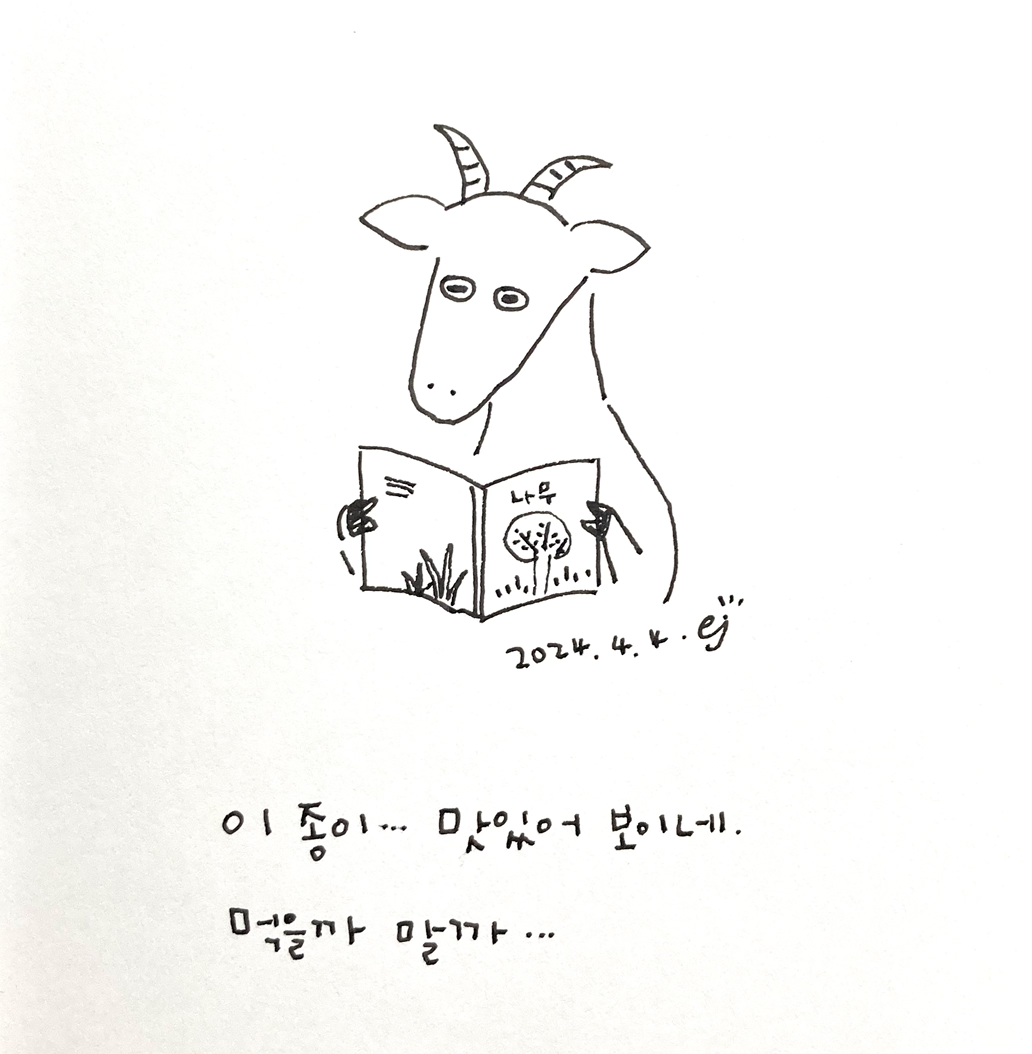 나무
2024.4.4. ej
이 종이... 맛있어 보이네.
먹을까 말까...